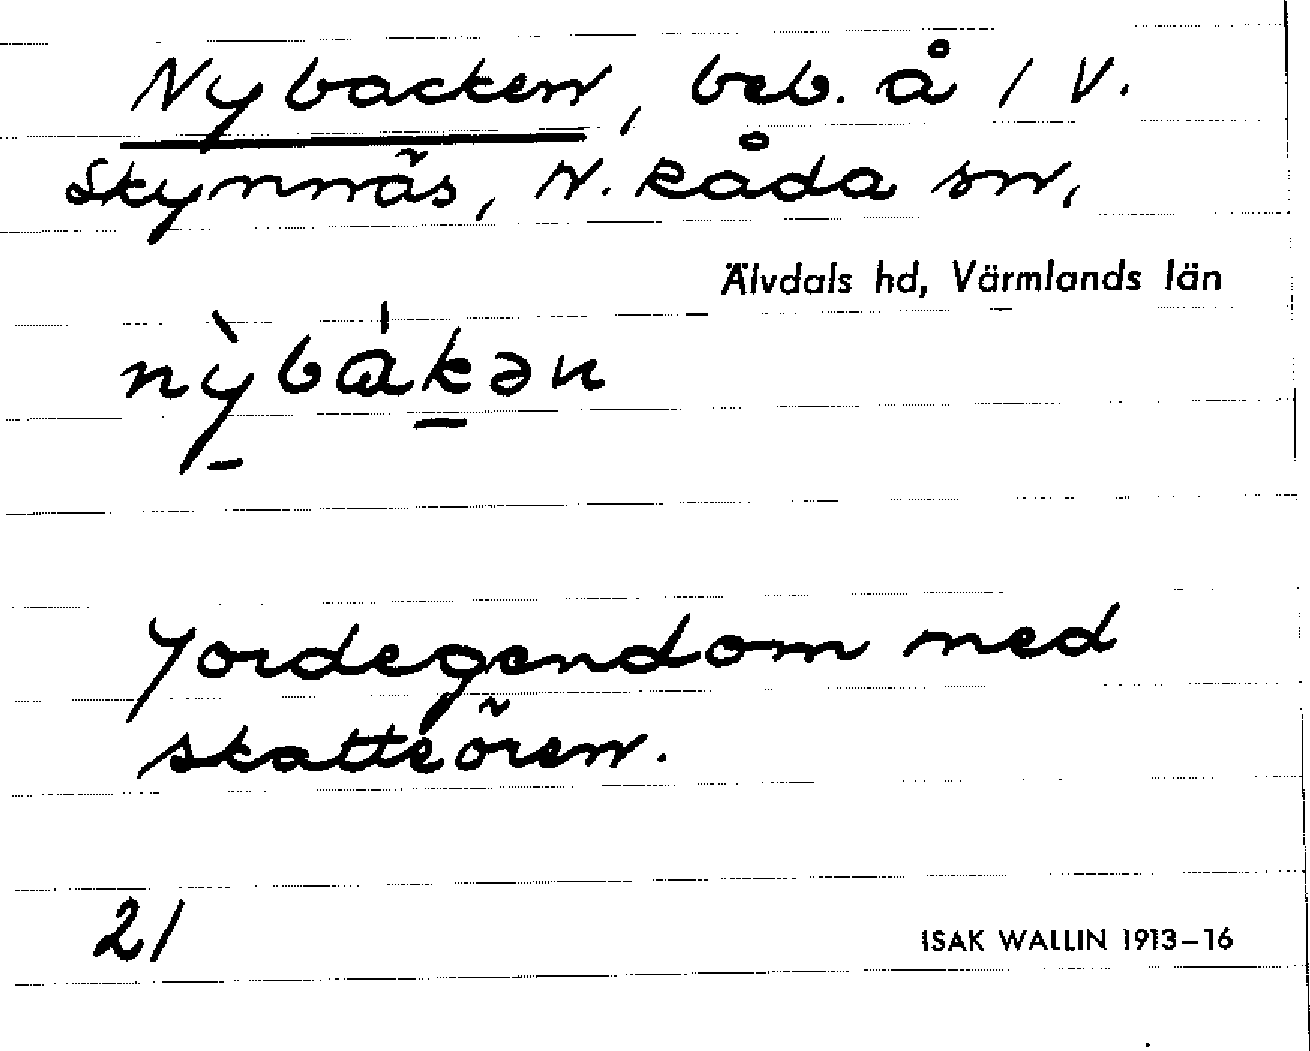 Nybacken, beb. å 1 V.
Skynnäs, N. Råda sn,
Älvdals hd, Värmlands län
nỳ̠bɑ̍k̠ən
Jordegendom med
skatteören.
21
ISAK WALLIN 1913–16